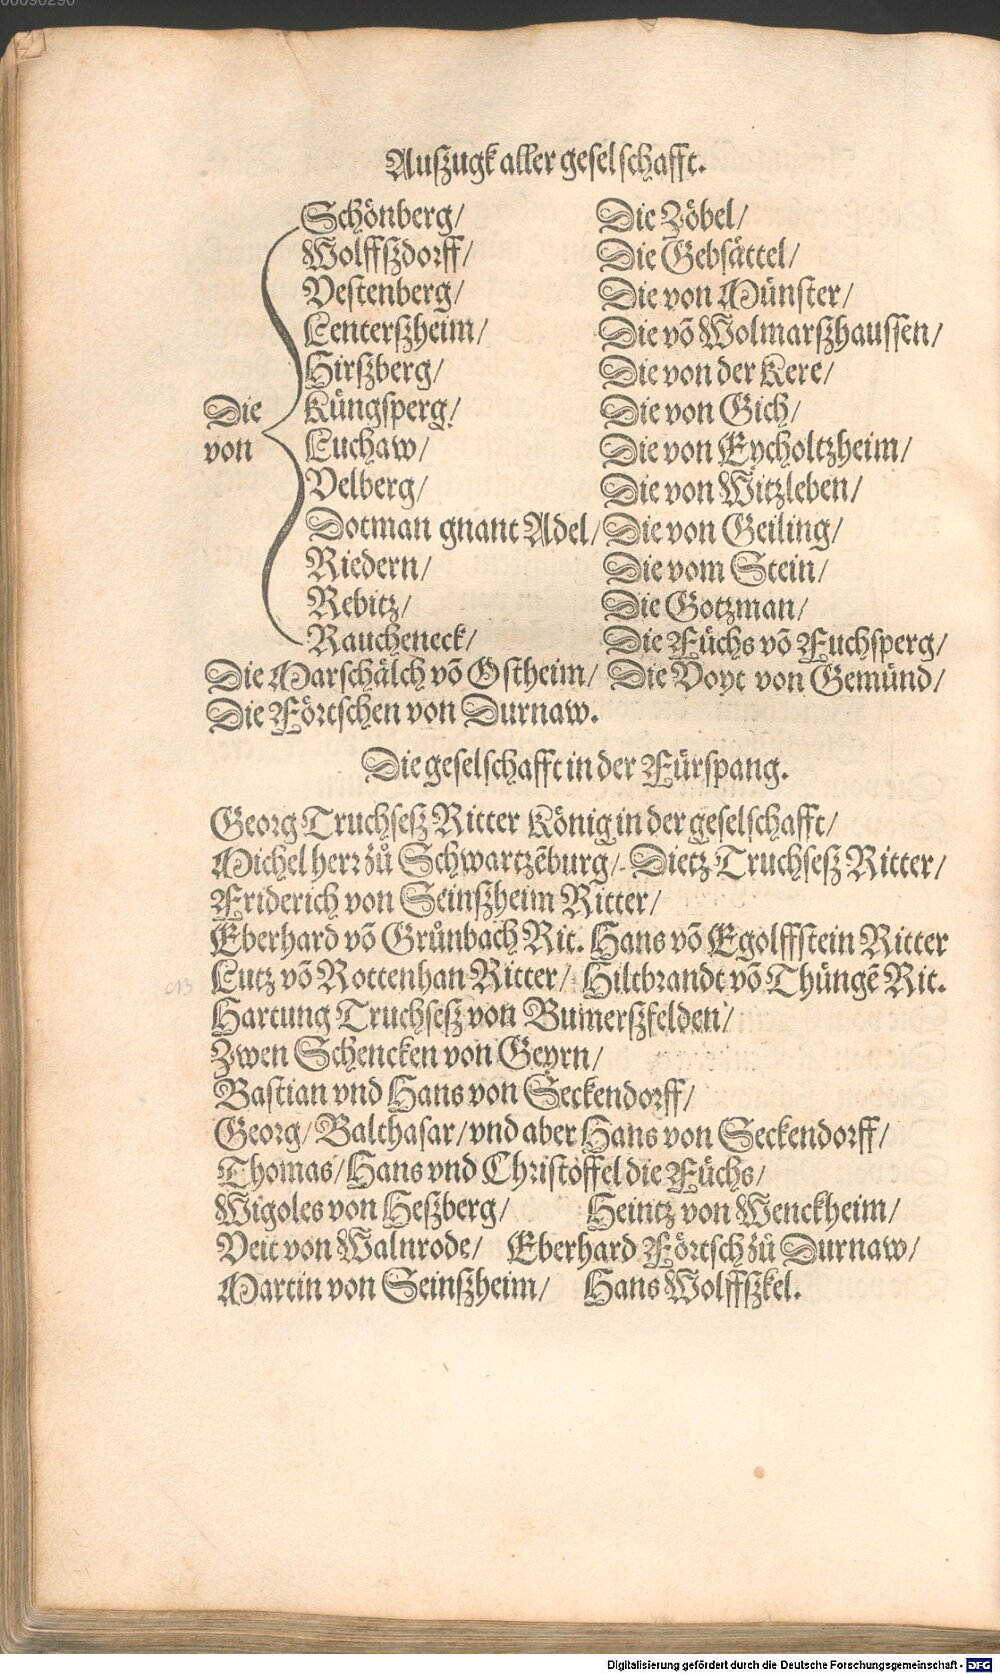 Auszugk aller geselschafft.
Die von
Schönberg/
Wolffßdorff/
Vestenberg/
Lenterßheim/
Hirßberg/
Küngsperg/
Luchaw/
Velberg/
Dotman gnant Adel/
Riedern/
Rebitz/
Raucheneck/
Die Zöbel/
Die Gebsättel/
Die von Münster/
Die võ Wolmarßhaussen/
Die von der Kere/
Die von Gich/
Die von Eycholtzheim/
Die von Witzleben/
Die von Geiling/
Die vom Stein/
Die Gotzman/
Die Füchs võ Fuchsperg/
Die Marschälch võ Ostheim/ Die Voyt von Gemünd/
Die Förtschen von Durnaw.
Die geselschafft in der Fürspang.
Georg Truchseß Ritter König in der geselschafft/
Michel herr zů Schwartzẽburg/ Dietz Truchseß Ritter/
Friderich von Seinßheim Ritter/
Eberhard võ Grůnbach Rit. Hans võ Egolffstein Ritter
Lutz võ Rottenhan Ritter/ Hiltbrandt võ Thüngẽ Rit.
Hartung Truchseß von Bumerßfelden/
Zwen Schencken von Geyrn/
Bastian vnd Hans von Seckendorff/
Georg/ Balthasar/ vnd aber Hans von Seckendorff/
Thomas/ Hans vnd Christoffel die Füchs/
Wigoles von Heßberg/ Heintz von Wenckheim/
Veit von Walnrode/ Eberhard Förtsch zů Durnaw/
Martin von Seinßheim/ Hans Wolffßkel.
Digitalisierung gefördert durch die Deutsche Forschungsgemeinschaft - DFG